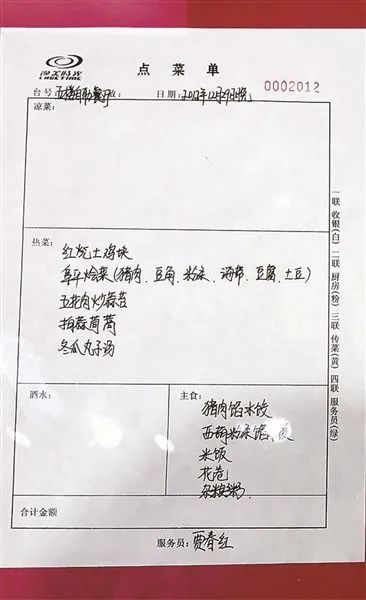 点菜单
0002012
台号 五楼自助餐厅 数: 日期: 2012年12月29日晚
凉菜:
热菜:
红烧土鸡块
阜平烩菜(猪肉、豆角、粉条、海带、豆腐、土豆)
五花肉炒蒜苔
拍蒜茼蒿
冬瓜丸子汤
酒水:
主食:
猪肉馅水饺
西葫粉条馅 饺
米饭
花卷
杂粮粥
合计金额
服务员: 贾春红
一联 收银(白) 二联 厨房(粉) 三联 传菜(黄) 四联 服务员(绿)